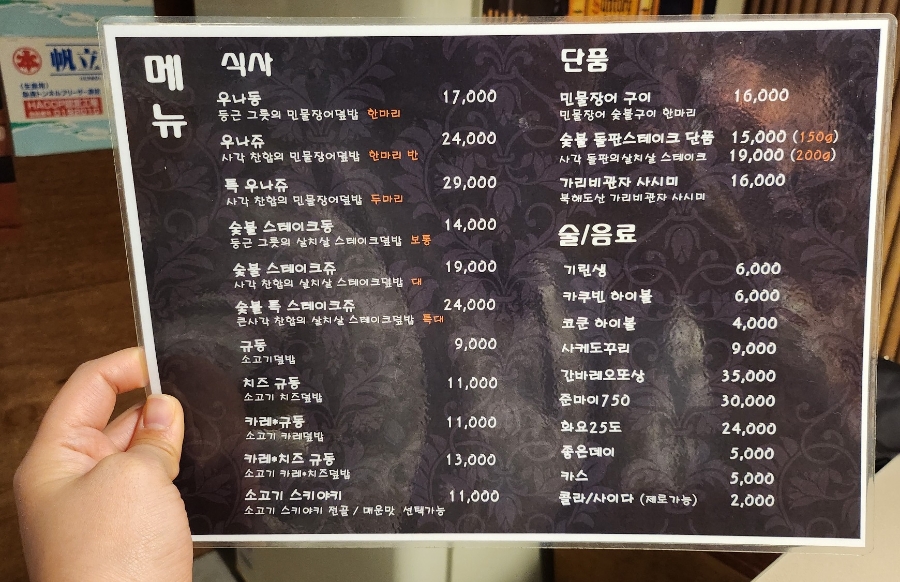 帆立
HACCP
Suntory
메뉴
식사
우나동 17,000
둥근 그릇의 민물장어덮밥 한마리
우나쥬 24,000
사각 찬합의 민물장어덮밥 한마리 반
특 우나쥬 29,000
사각 찬합의 민물장어덮밥 두마리
숯불 스테이크동 14,000
둥근 그릇의 살치살 스테이크덮밥 보통
숯불 스테이크쥬 19,000
사각 찬합의 살치살 스테이크덮밥 대
숯불 특 스테이크쥬 24,000
큰사각 찬합의 살치살 스테이크덮밥 특대
규동 9,000
소고기덮밥
치즈 규동 11,000
소고기 치즈덮밥
카레*규동 11,000
소고기 카레덮밥
카레*치즈 규동 13,000
소고기 카레*치즈덮밥
소고기 스키야키 11,000
소고기 스키야키 전골 / 매운맛 선택가능
단품
민물장어 구이 16,000
민물장어 숯불구이 한마리
숯불 돌판스테이크 단품 15,000 (150g)
사각 돌판의살치살 스테이크 19,000 (200g)
가리비관자 사시미 16,000
북해도산 가리비관자 사시미
술/음료
기린생 6,000
카쿠빈 하이볼 6,000
코쿤 하이볼 4,000
사케도꾸리 9,000
간바레오또상 35,000
준마이750 30,000
화요25도 24,000
좋은데이 5,000
카스 5,000
콜라/사이다 (제로가능) 2,000